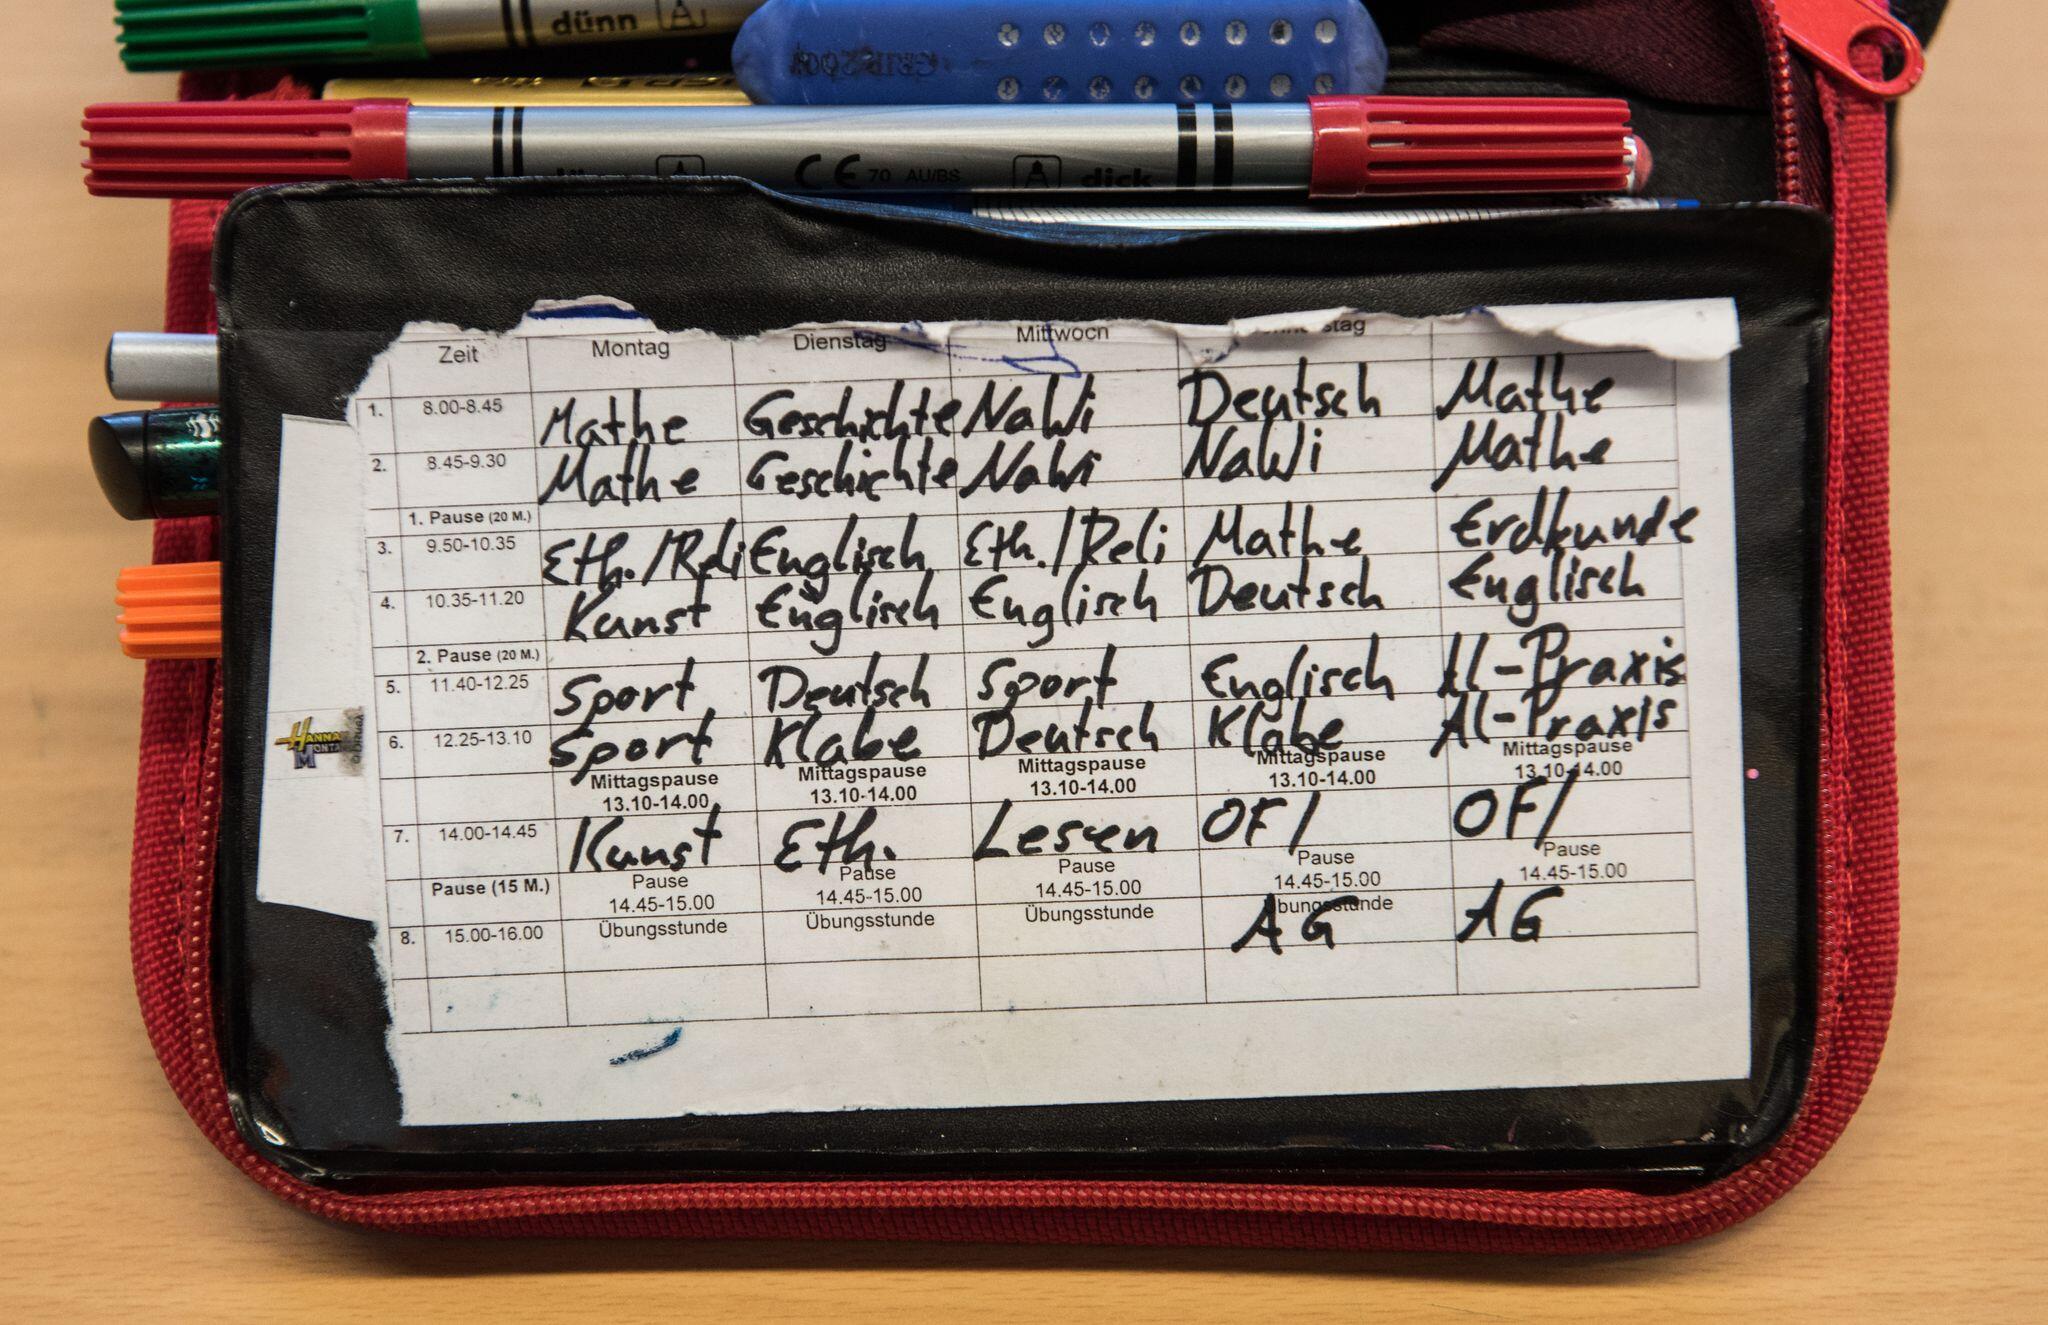 dünn
GRIP 2001
CE 70 AU/BS dick
Zeit Montag Dienstag Mittwoch
1. 8.00-8.45 Mathe Geschichte NaWi Deutsch Mathe
2. 8.45-9.30 Mathe Geschichte NaWi NaWi Mathe
1. Pause (20 M.)
3. 9.50-10.35 Eth./Reli Englisch Eth./Reli Mathe Erdkunde
4. 10.35-11.20 Kunst Englisch Englisch Deutsch Englisch
2. Pause (20 M.)
5. 11.40-12.25 Sport Deutsch Sport Englisch Al-Praxis
6. 12.25-13.10 Sport Klabe Deutsch Klabe Al-Praxis
Mittagspause Mittagspause Mittagspause Mittagspause Mittagspause
13.10-14.00 13.10-14.00 13.10-14.00 13.10-14.00 13.10-14.00
7. 14.00-14.45 Kunst Eth. Lesen OF/ OF/
Pause (15 M.) Pause Pause Pause Pause Pause
14.45-15.00 14.45-15.00 14.45-15.00 14.45-15.00 14.45-15.00
8. 15.00-16.00 Übungsstunde Übungsstunde Übungsstunde Übungsstunde
AG AG
HANNAH
MONTANA